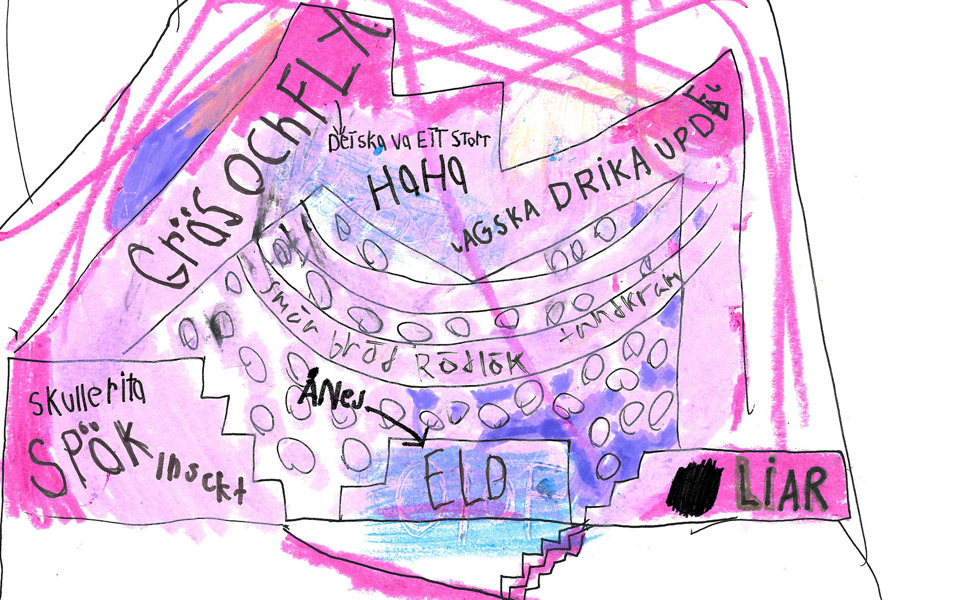 Gräs OCH FLY
Det ska va EtT StorT
HaHa
JAG SKA DRIKA UPP DEJ
smör bröd Rödlök tandkräm
ÅNej
skulle rita
SPÖK
Insekt
ELD
LiAR